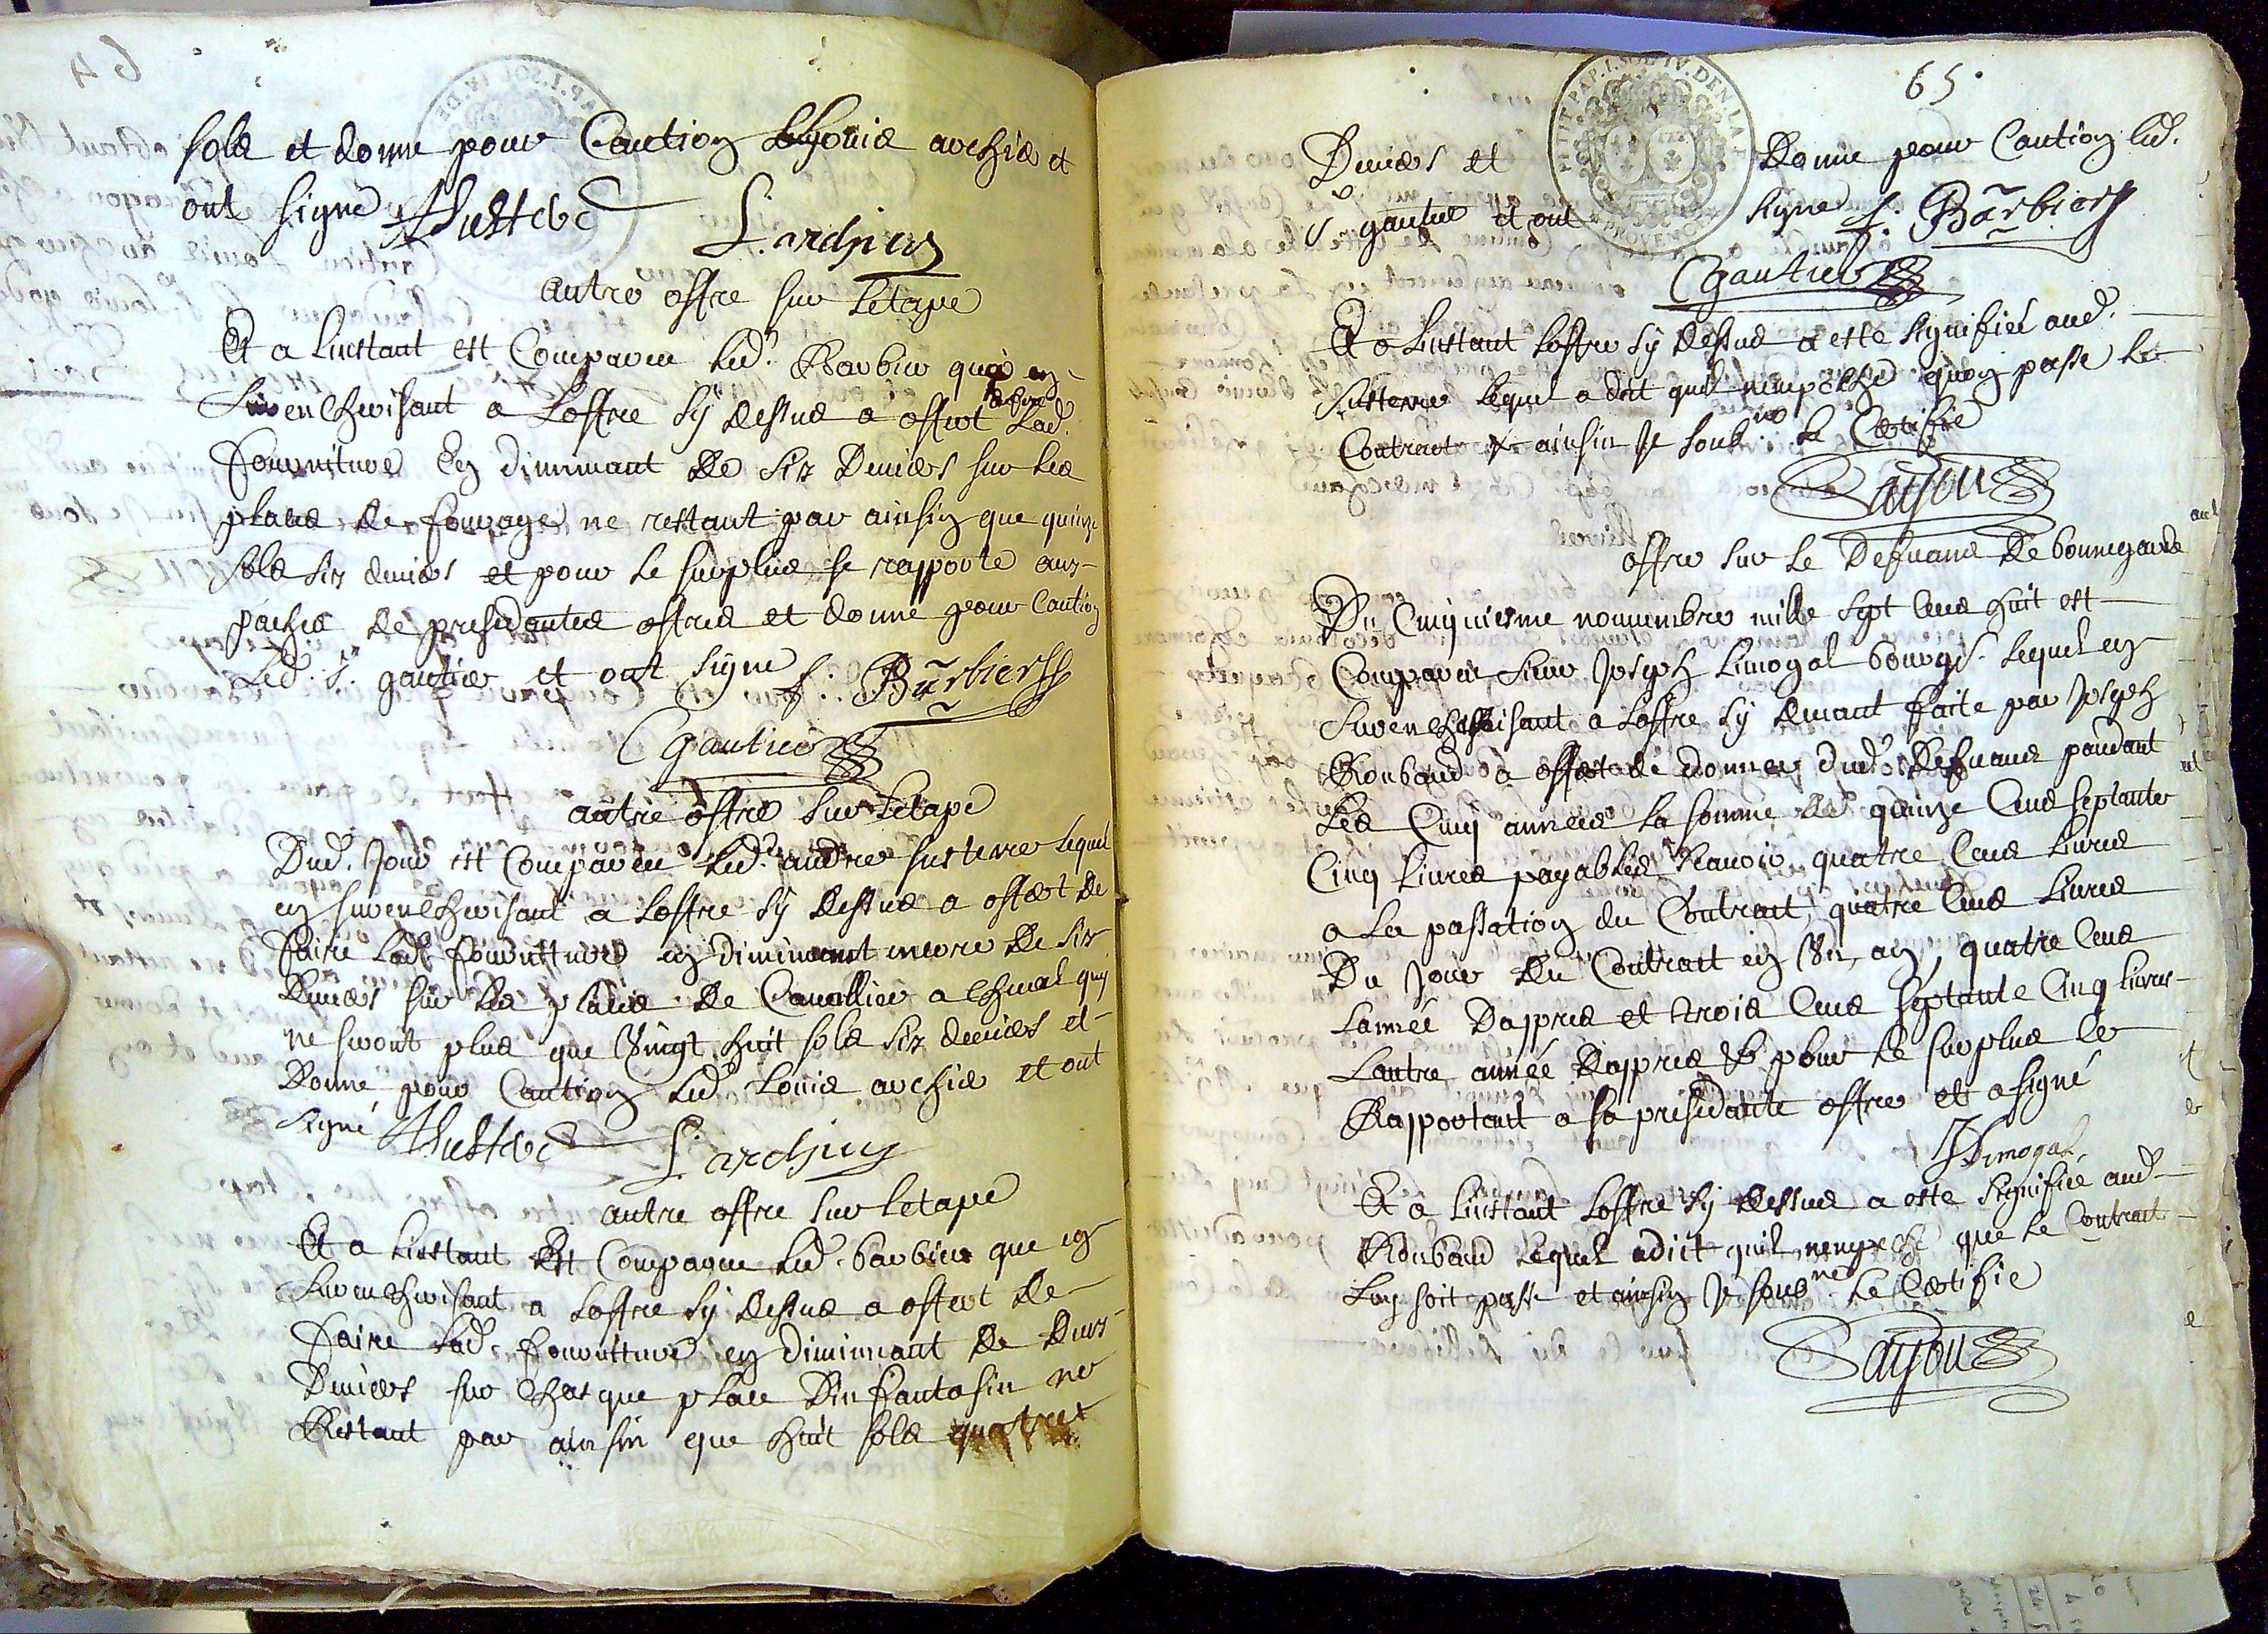 sols et donne pour Caution Louis archier et
ont signé AHustere
L. archiers
autre offre sur letape
Et a linstant est Comparu led. Barbier qui en
surencherisant a Loffre sy dessus a offert faire Lad.
fourniture En diminuant de six Deniers sur les
places de fourage ne restant par ainsin que quinze
sols six deniers et pour le surplus se rapporte aux
paches de presedantes offres et donne pour Caution
Led. Sr. gautier et ont signé f: Barbier
Cgautier
autre offre sur letape
Dud. Jour est Comparu led. andre sustere lequel
en surencherisant a Loffre sy dessus a offert de
faire lad. fourniture en diminuant encore de six
deniers sur les places de Cavallier a cheval quy
ne seront plus que vingt huit sols six deniers et
donne pour Caution led. Louis archier et ont
signé AHustere L. archiers
autre offre sur letape
Et a linstant Est Comparu led. barbier que en
surencherisant a Loffre sy dessus a offert de
faire lad. fourniture en diminuant de deux
Deniers sur chasque place Dinfantasin ne
Restant par ainsin que huit sols quatre
65
PETIT PAP. I. SOL IV. DEN LA F
PROVENCE
Deniers et Donne pour Caution led.
Sr. gautier et ont signé f. Barbier
Cgautier
Et a Linstant Loffre sy dessus a este signifiée aud.
sustere lequel a dit quil nempeche quon passe le
Contract et ainsin Je soubné. le Certifie
Sayou
offre sur le Defuans de bonnegarde
Du Cinquiesme novembre mille sept cens huit est
Comparu sieur Joseph Limogal bourgs. lequel en
surencherisant a Loffre sy devant faite par Joseph
Roubaud a offert de donner dud. Defuans pandant
Les Cinq années la somme de quinze Cens septante
Cinq Livres payables scavoir quatre Cens Livres
a La passation du Contract, quatre Cens Livres
Du Jour du Contract en Un an, quatre Cens
Lannée Dapres et trois Cens septante Cinq Livres
Lautre année Dapres et pour le surplus se
Rapportant a sa presedante offre et a signé
JLimogal
Et a Linstant Loffre sy dessus a este signifiée aud
Roubaud lequel a dict quil nempeche que le Contract
Luy soit passé et ainsin Je sousné. le Certifie
Sayou